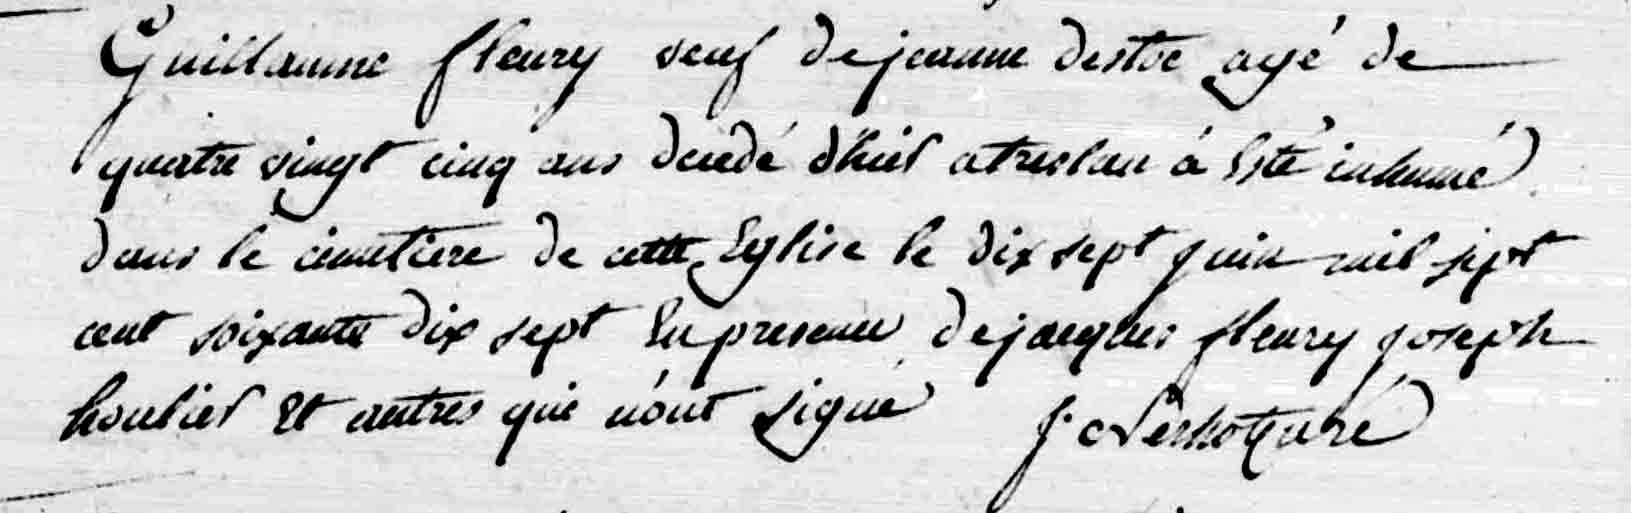 Guillaume fleury veuf de jeanne destoc agé de
quatre vingt cinq ans decedé d'hier a treslan á Esté inhumé
dans le cimetiere de cette Eglise le dix sept juin mil sept
cent soixante dix sept En presence de jacques fleury joseph
houlier Et autres qui n'ont signé